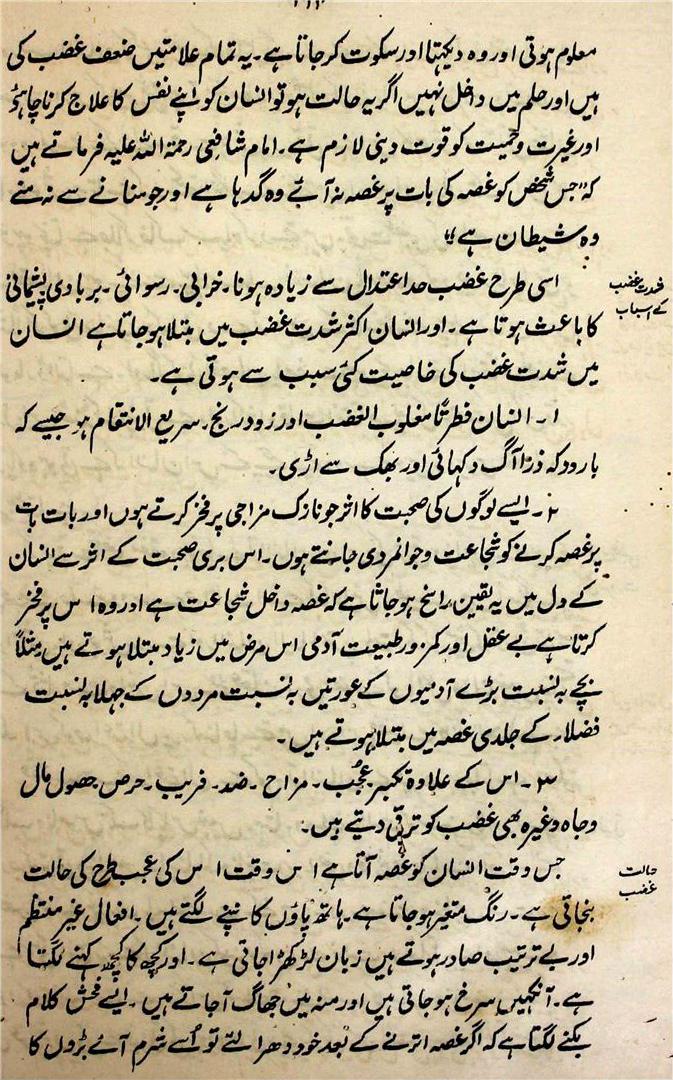 معلوم ہوتی اور وہ دیکہتا اور سکوت کر جاتا ہے۔ یہ تمام علامتیں ضعف غضب کی
ہیں اور حلم میں داخل نہیں اگر یہ حالت ہو تو انسان کو اپنے نفس کا علاج کرنا چاہئے
اور غیرت و حمیت کو قوت دینی لازم ہے۔ امام شافعی رحمۃ اللہ علیہ فرماتے ہیں
کہ "جس شخص کو غصہ کی بات پر غصہ نہ آئے وہ گدہا ہے اور جو منانے سے نہ منے
وہ شیطان ہے"
شدت غضب
کے اسباب
اسی طرح غضب حد اعتدال سے زیادہ ہونا۔ خرابی۔ رسوائی۔ بربادی پشیمانی
کا باعث ہوتا ہے۔ اور انسان اکثر شدت غضب میں مبتلا ہو جاتا ہے انسان
میں شدت غضب کی خاصیت کئی سبب سے ہوتی ہے۔
۱۔ انسان فطرتًا مغلوب الغضب اور زود رنج۔ سریع الانتقام ہو جیسے کہ
بارود کہ ذرا آگ دکہائی اور بھک سے اڑی۔
۲۔ ایسے لوگوں کی صحبت کا اثر جو نازک مزاجی پر فخر کرتے ہوں اور بات بات
پر غصہ کرنے کو شجاعت و جوانمردی جانتے ہوں۔ اس بری صحبت کے اثر سے انسان
کے دل میں یہ یقین راسخ ہو جاتا ہے کہ غصہ داخل شجاعت ہے اور وہ اس پر فخر
کرتا ہے بے عقل اور کمزور طبیعت آدمی اس مرض میں زیاد مبتلا ہوتے ہیں مثلاً
بچے بہ نسبت بڑے آدمیوں کے عورتیں بہ نسبت مردوں کے جہلا بہ نسبت
فضلاء کے جلدی غصہ میں مبتلا ہوتے ہیں۔
۳۔ اس کے علاوہ تکبر۔ عُجُب۔ مزاح۔ ضد۔ فریب۔ حرص حصول مال
و جاہ وغیرہ بھی غضب کو ترقی دیتے ہیں۔
حالت
غضب
جس وقت انسان کو غصہ آتا ہے اس وقت اس کی عجب طرح کی حالت
بنجاتی ہے۔ رنگ متغیر ہو جاتا ہے۔ ہاتھ پاؤں کانپنے لگتے ہیں۔ افعال غیر منتظم
اور بے ترتیب صادر ہوتے ہیں زبان لڑکھڑا جاتی ہے۔ اور کچھ کا کچھ کہنے لگتا
ہے۔ آنکہیں سرخ ہو جاتی ہیں اور منہ میں جھاگ آ جاتے ہیں۔ ایسے فحش کلام
بکنے لگتا ہے کہ اگر غصہ اترنے کے بعد خود دھرائے تو اُسے شرم آئے بڑوں کا